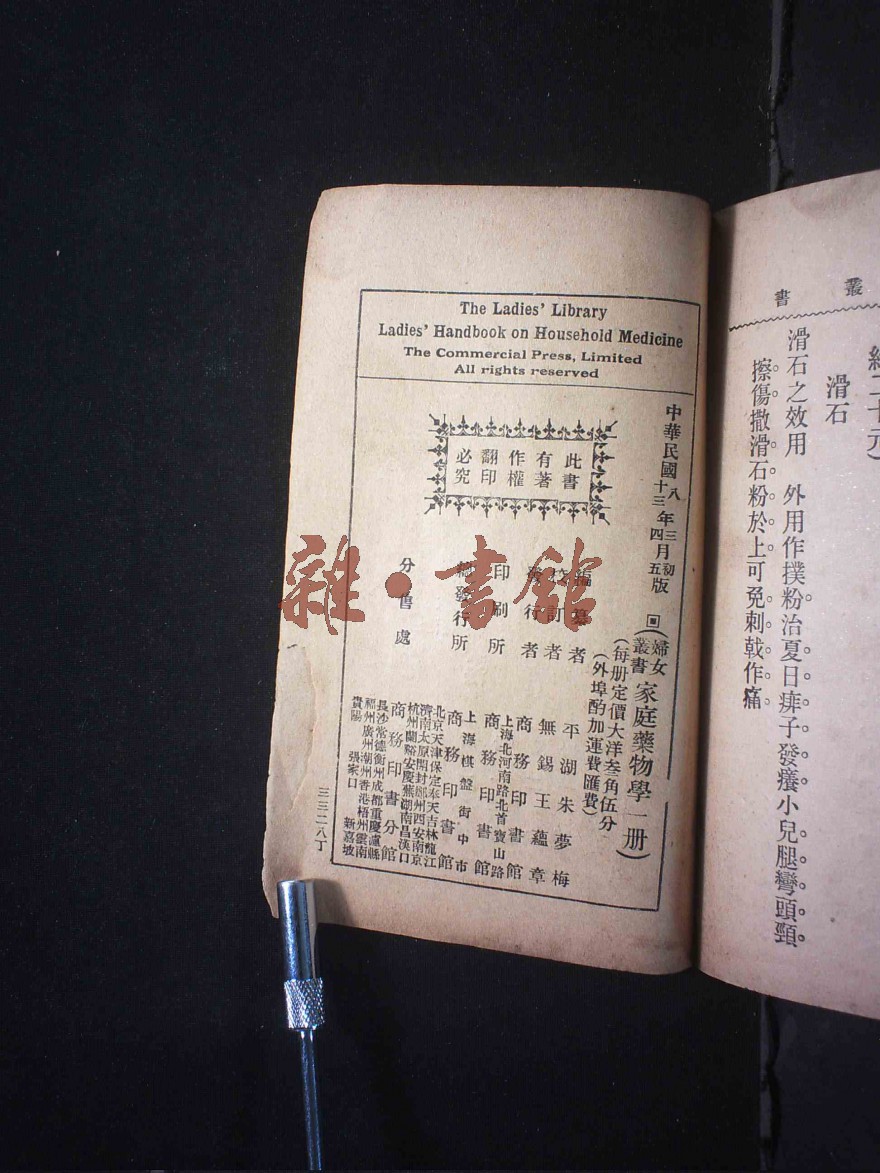 The Ladies' Library
Ladies' Handbook on Household Medicine
The Commercial Press, Limited
All rights reserved
叢書
滑石
滑石之效用 外用作撲粉治夏日痱子發癢小兒腿彎頭頸
擦傷撒滑石粉於上可免刺戟作痛
中華民國八年三月初版
十三 四五
(婦女叢書家庭藥物學一册)
(每册定價大洋叁角伍分)
(外埠酌加運費匯費)
此書
有著
作權
翻印
必究
編纂者 平湖朱夢梅
校訂者 無錫王蘊章
發行者 商務印書館
印刷所 上海北河南路北首寶山路
商務印書館
總發行所 上海棋盤街中市
商務印書館
分售處 北京天津保定奉天吉林龍江
濟南太原開封鄭州西安南京
杭州蘭谿安慶蕪湖南昌漢口
商務印書分館
長沙常德衡州成都重慶瀘縣
福州廣州潮州香港梧州雲南
貴陽 張家口 新嘉坡
三三二八丁
雜·書館